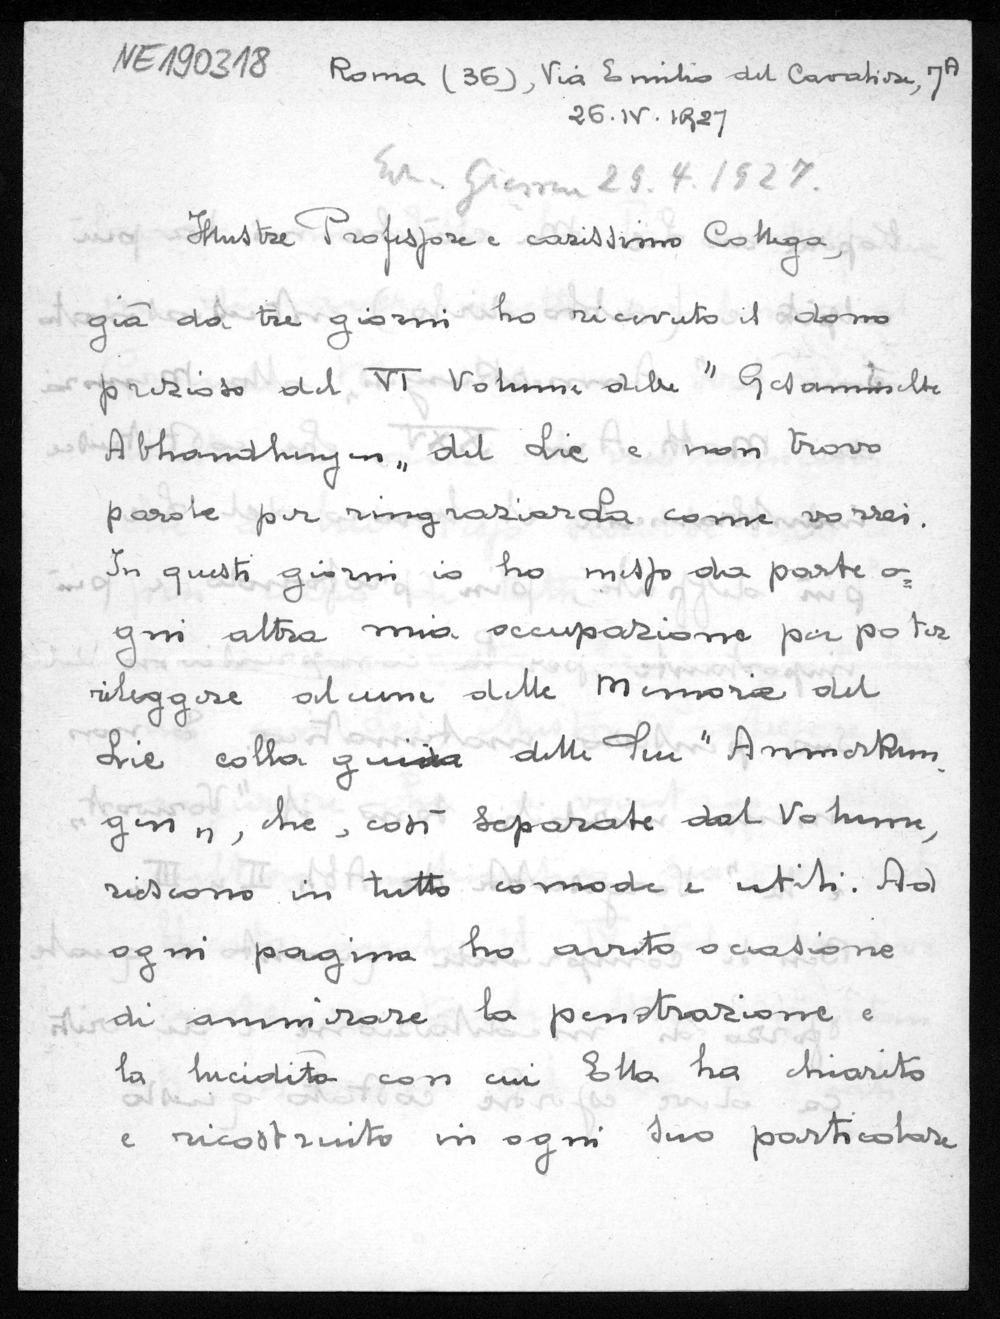 NE190318
Roma (36), Via Emilio del Cavaliere, 7A
26.IV.1927
Giessen 29.4.1927.
Illustre Professore e carissimo Collega,
già da tre giorni ho ricevuto il dono
prezioso del VI Volume delle "Gesammelte
Abhandlungen„ del Lie e non trovo
parole per ringraziarLa come vorrei.
In questi giorni io ho messo da parte o=
gni altra mia occupazione per poter
rileggere alcune delle Memorie del
Lie colla guida delle Sue "Anmerkun
gen„, che, così separate dal Volume,
riescono in tutto comode e utili. Ad
ogni pagina ho avuto occasione
di ammirare la penetrazione e
la lucidità con cui Ella ha chiarito
e ricostruito in ogni suo particolare